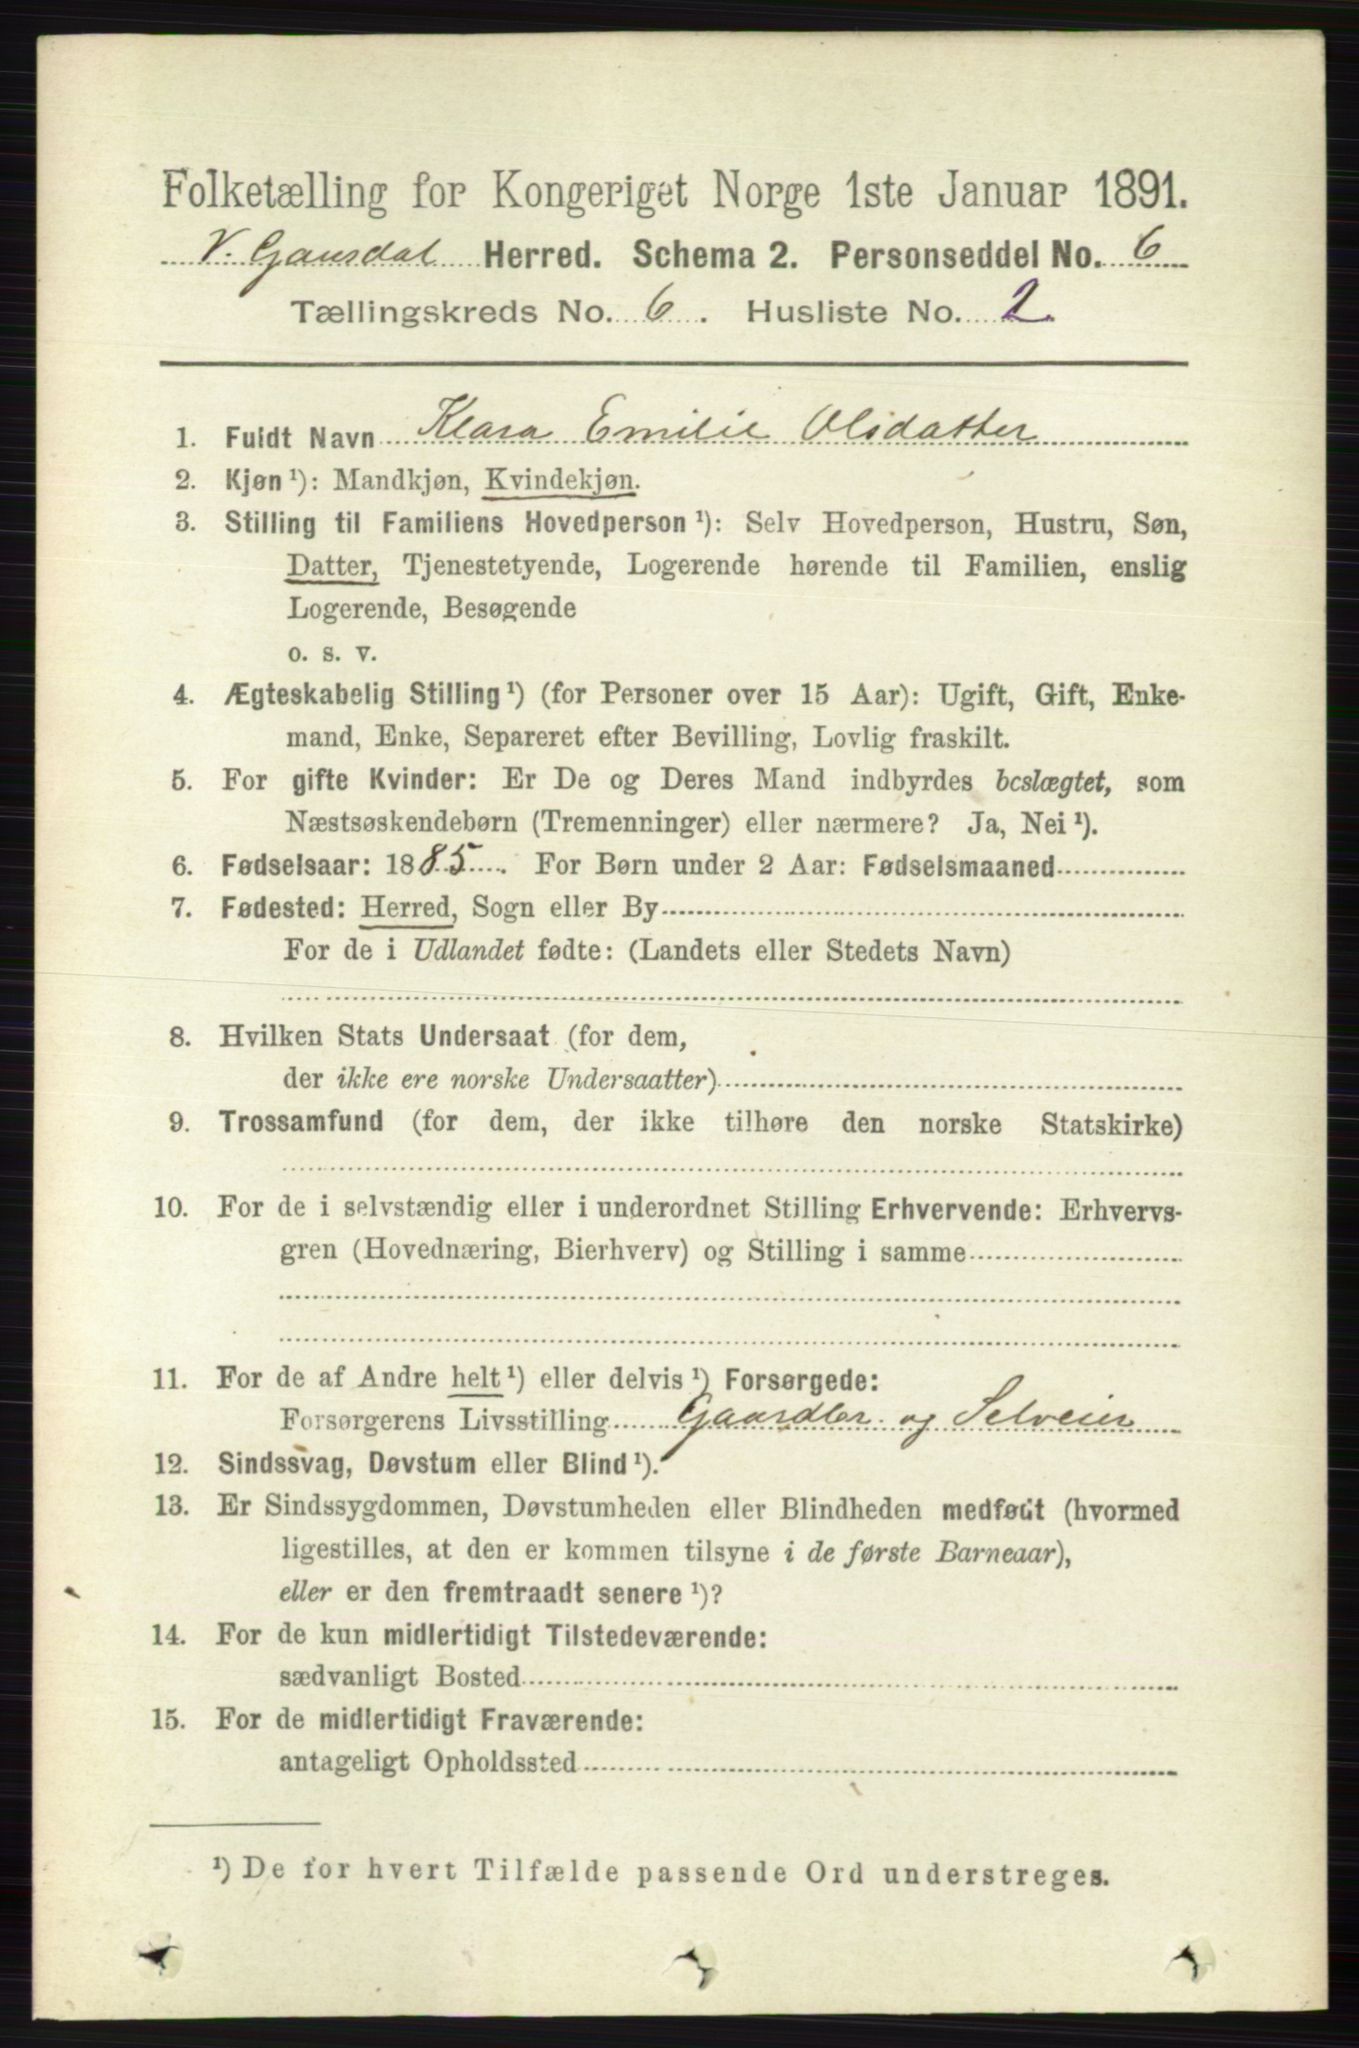 Folketælling for Kongeriget Norge 1ste Januar 1891.
V. Gausdal Herred. Schema 2. Personseddel No. 6
Tællingskreds No. 6. Husliste No. 2
1. Fuldt Navn Klara Emilie Olsdatter
2. Kjøn ¹): Mandkjøn, Kvindekjøn.
3. Stilling til Familiens Hovedperson ¹): Selv Hovedperson, Hustru, Søn,
Datter, Tjenestetyende, Logerende hørende til Familien, enslig
Logerende, Besøgende
o. s. v.
4. Ægteskabelig Stilling ¹) (for Personer over 15 Aar): Ugift, Gift, Enke-
mand, Enke, Separeret efter Bevilling, Lovlig fraskilt.
5. For gifte Kvinder: Er De og Deres Mand indbyrdes beslægtet, som
Næstsøskendebørn (Tremenninger) eller nærmere? Ja, Nei ¹).
6. Fødselsaar: 1885. For Børn under 2 Aar: Fødselsmaaned
7. Fødested: Herred, Sogn eller By
For de i Udlandet fødte: (Landets eller Stedets Navn)
8. Hvilken Stats Undersaat (for dem,
der ikke ere norske Undersaatter)
9. Trossamfund (for dem, der ikke tilhøre den norske Statskirke)
10. For de i selvstændig eller i underordnet Stilling Erhvervende: Erhvervs-
gren (Hovednæring, Bierhverv) og Stilling i samme
11. For de af Andre helt ¹) eller delvis ¹) Forsørgede:
Forsørgerens Livsstilling Gaardbr. og Selveier
12. Sindssvag, Døvstum eller Blind ¹).
13. Er Sindssygdommen, Døvstumheden eller Blindheden medfødt (hvormed
ligestilles, at den er kommen tilsyne i de første Barneaar),
eller er den fremtraadt senere ¹)?
14. For de kun midlertidigt Tilstedeværende:
sædvanligt Bosted
15. For de midlertidigt Fraværende:
antageligt Opholdssted
¹) De for hvert Tilfælde passende Ord understreges.